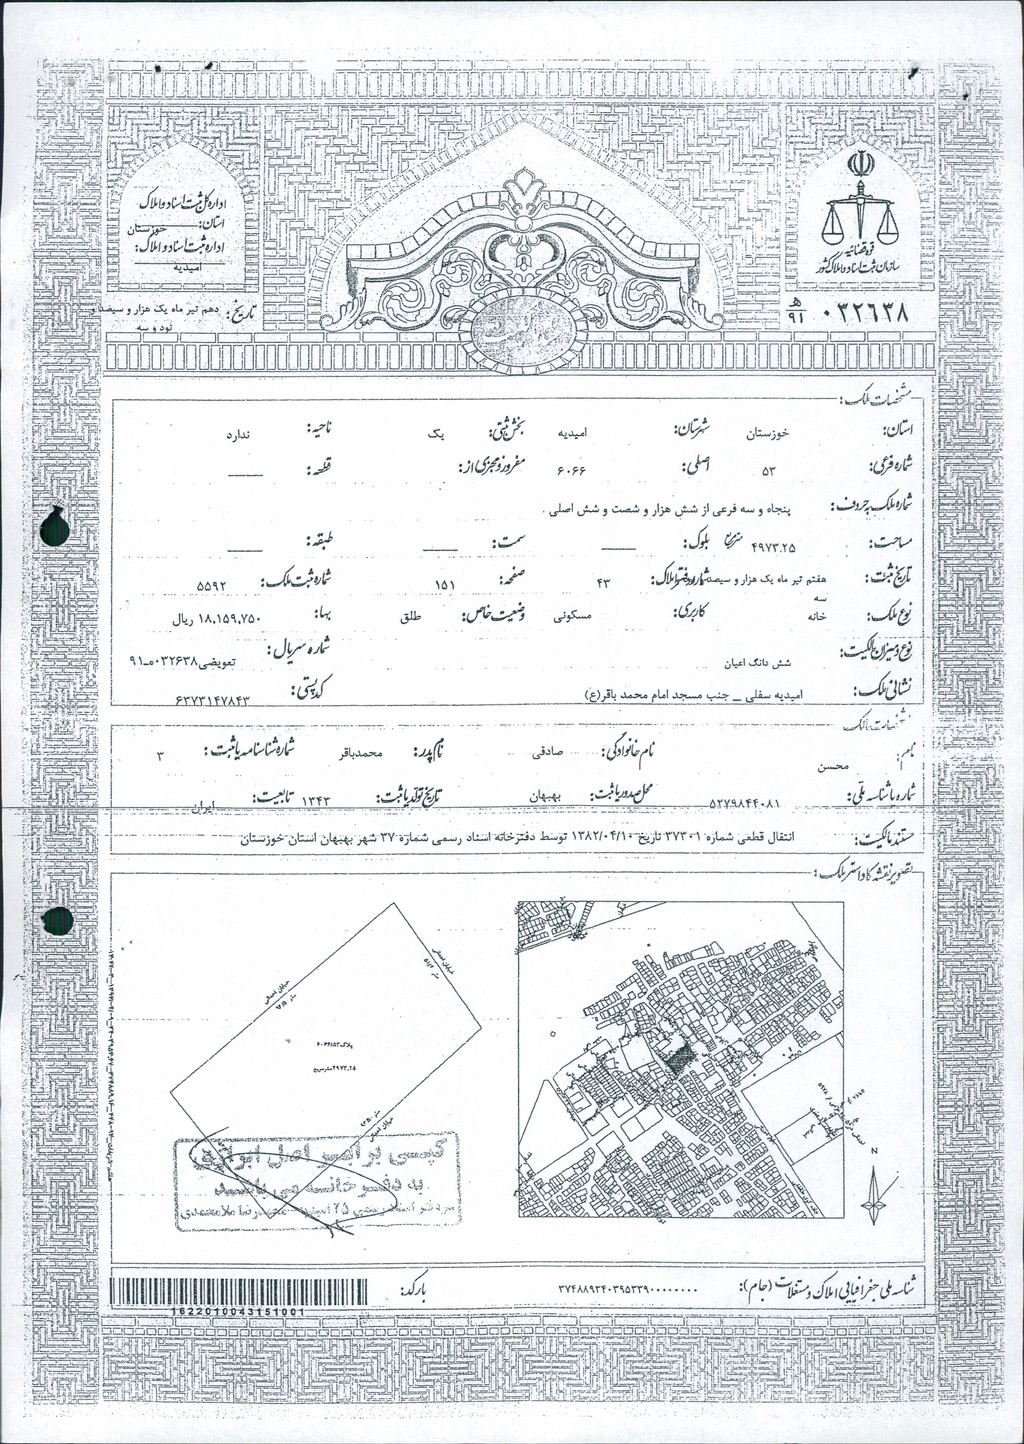 اداره کل ثبت اسناد و املاک
استان: خوزستان
اداره ثبت اسناد و املاک:
امیدیه
تاریخ: دهم تیر ماه یک هزار و سیصد و
نود و سه
قوه قضائیه
سازمان ثبت اسناد و املاک کشور
ه‍/۹۱ ۰۳۲۶۳۸
مشخصات ملک:
استان: خوزستان شهرستان: امیدیه بخش ثبتی: یک ناحیه: ندارد
شماره فرعی: ۵۳ اصلی: ۶۰۶۶ مفروز و مجزی از: قطعه: ——
شماره ملک به حروف: پنجاه و سه فرعی از شش هزار و شصت و شش اصلی .
مساحت: ۴۹۷۳.۲۵ مترمربع بلوک: —— سمت: —— طبقه: ——
تاریخ ثبت: هفتم تیر ماه یک هزار و سیصد شماره دفتر املاک: ۴۳ صفحه: ۱۵۱ شماره ثبت ملک: ۵۵۹۲
سه
نوع ملک: خانه کاربری: مسکونی وضعیت خاص: طلق بها: ۱۸,۱۵۹,۷۵۰ ریال
نوع و میزان مالکیت: شش دانگ اعیان شماره سریال: تعویضی۰۳۲۶۳۸ـه‍ـ۹۱
نشانی ملک: امیدیه سفلی ــ جنب مسجد امام محمد باقر(ع) کدپستی: ۶۳۷۳۱۴۷۸۴۳
مشخصات مالک
نام: محسن نام خانوادگی: صادقی نام پدر: محمدباقر شماره شناسنامه یا ثبت: ۳
شماره یا شناسه ملی: ۵۲۷۹۸۴۴۰۸۱ محل صدور یا ثبت: بهبهان تاریخ تولد یا ثبت: ۱۳۴۳ تابعیت: ایران
مستند مالکیت: انتقال قطعی شماره ۳۷۳۰۱ تاریخ ۱۳۸۲/۰۴/۱۰ توسط دفترخانه اسناد رسمی شماره ۳۷ شهر بهبهان استان خوزستان
تصویر نقشه کاداستر ملک:
خیابان احداثی
خیابان احداثی
پلاک۶۰۶۶/۵۳
۴۹۷۳.۲۵مترمربع
خیابان احداثی
N
کپی برابر اصل ابرازی
به دفترخانه می باشد
شناسه ملی جغرافیایی املاک و مستغلات (جام): ۳۷۴۸۸۹۳۴۰۳۹۵۳۳۹۰۰۰۰۰۰۰۰ بارکد:
1622010043151001